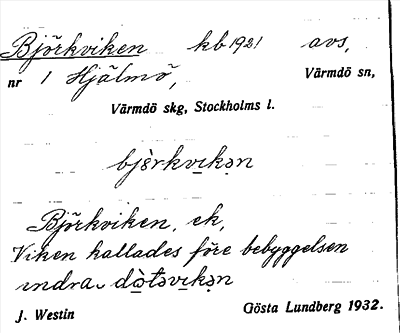 Björkviken kb 1921 avs,
nr 1 Hjälmö, Värmdö sn,
Värmdö skg, Stockholms l.
bjèrkvikən
Björkviken, ek,
Viken kallades före bebyggelsen
indra
J. Westin Gösta Lundberg 1932.